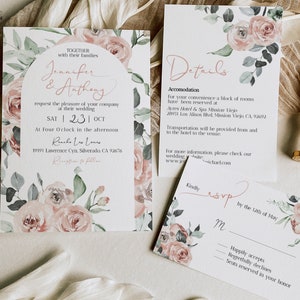 TOGETHER
with their families
Jennifer
& Anthony
request the pleasure of your company
at their wedding
SAT | 23 | OCT
At Four O'clock in the afternoon
Rancho Las Lomas
19191 Lawrence Cyn, Silverado, CA 92676
Details
Accomodation
For your convenience a block of rooms
have been reserved at
Ayres Hotel & Spa Mission Viejo
Mission Viejo, CA 92691
Transportation will be provided from and
to the hotel to the venue.
For more information please check our
wedding
Kindly
rsvp
by the 18th of May
M
Happily accepts
Regretfully declines
Seats reserved in your honor